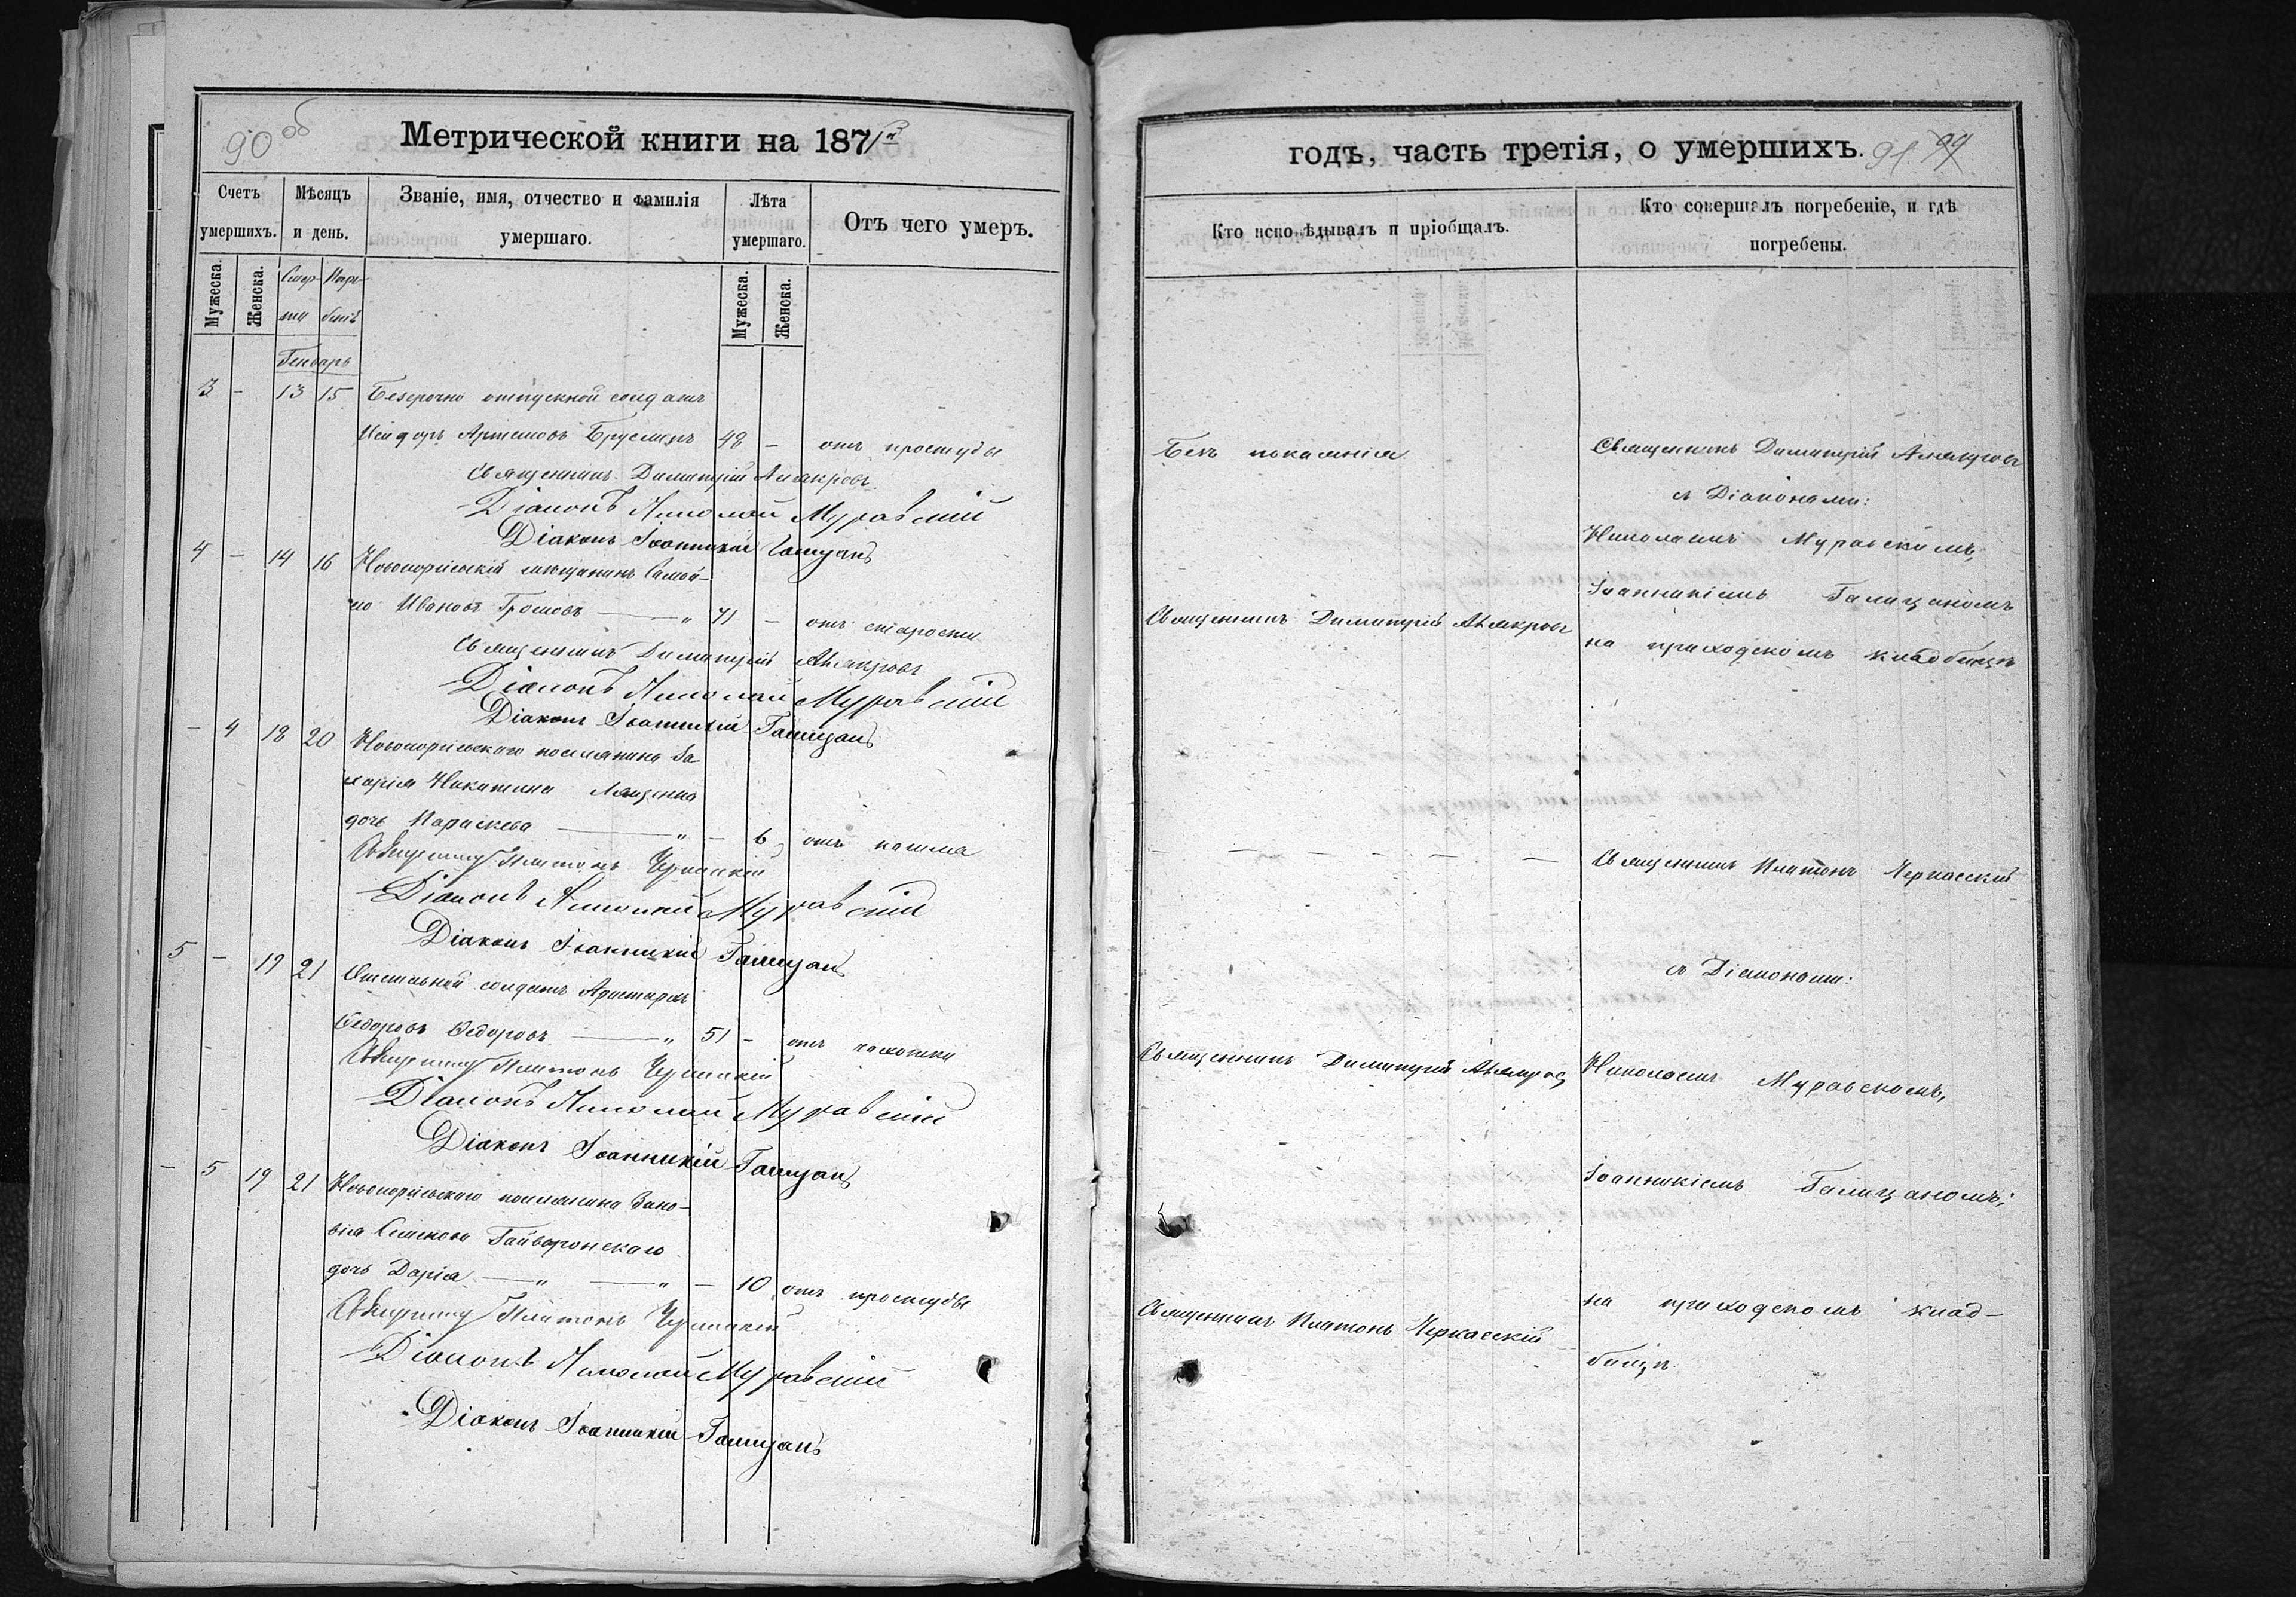 90 об
Метрической книги на 1871й
Счетъ умершихъ.
Мѣсяцъ и день.
Званіе, имя, отчество и фамилія умершаго.
Лѣта умершаго.
Отъ чего умеръ.
Мужеска.
Женска.
Смер-
ти
Погре-
бенія
Мужеска.
Женска.
Генварь
3 - 13 15 Безсрочно отпускной солдатъ
Исидоръ Артемовъ 48 - отъ простуды
Священникъ Димитрій
Діаконъ Николай Муравскій
Діаконъ Іоанникій Галицанъ
4 - 14 16 мѣщанинъ Самой-
ло Ивановъ Громовъ — „ 71 - отъ старости
Священникъ Димитрій
Діаконъ Николай Муравскій
Діаконъ Іоанникій Галицанъ
- 4 18 20 поселянина За-
харія Никитина Лященко
дочь Параскева — „ - 6 отъ кашля
Священникъ Платонъ Черкасскій
Діаконъ Николай Муравскій
Діаконъ Іоанникій Галицанъ
5 - 19 21 Отставной солдатъ Аристархъ
Ѳедоровъ Ѳедоровъ — „ 51 - отъ чахотки
Священникъ Платонъ Черкасскій
Діаконъ Николай Муравскій
Діаконъ Іоанникій Галицанъ
- 5 19 21 поселянина Зино-
вія Семенова Гайворонскаго
дочь Дарія — „ — „ - 10 отъ простуды
Священникъ Платонъ Черкасскій
Діаконъ Николай Муравскій
Діаконъ Іоанникій Галицанъ
годъ, часть третія, о умершихъ.
91. 99
Кто исповѣдывалъ и пріобщалъ.
Кто совершалъ погребеніе, и гдѣ погребены.
Безъ покаянія
Священникъ Димитрій
съ Діаконами:
Николаемъ Муравскимъ,
Іоанникіемъ Галицаномъ
Священникъ Димитрій
на приходскомъ кладбищѣ
— — — — — —
Священникъ Платонъ Черкасскій
съ Діаконами:
Священникъ Димитрій
Николаемъ Муравскимъ,
Іоанникіемъ Галицаномъ;
Священникъ Платонъ Черкасскій
на приходскомъ клад-
бищѣ